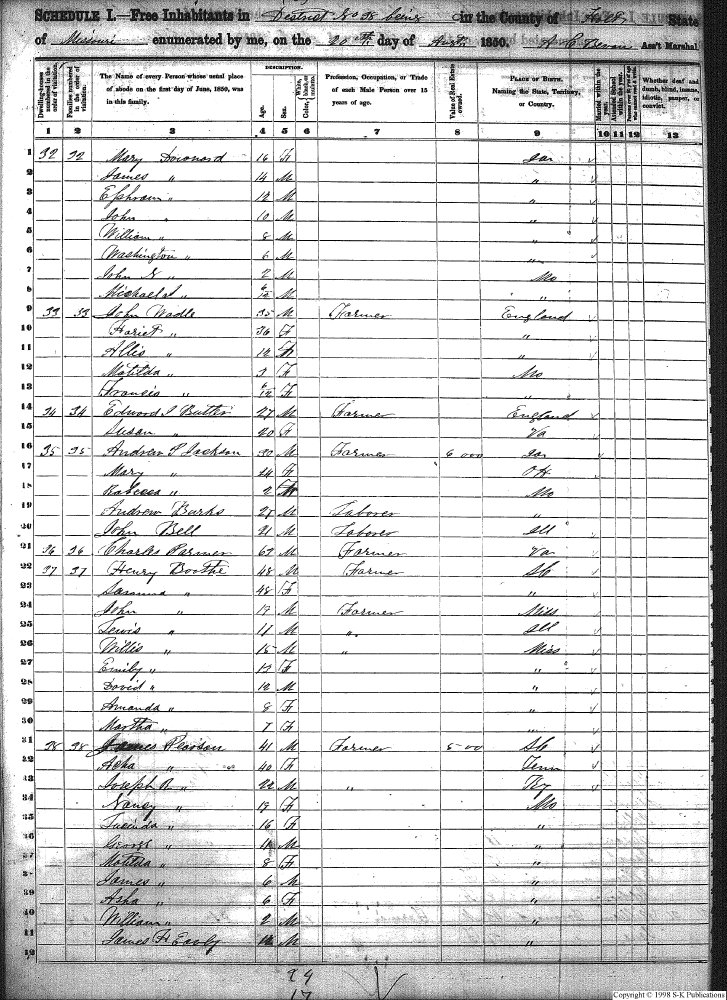 SCHEDULE I.—Free Inhabitants in District No 38 being in the County of Holt State
of Missouri enumerated by me, on the 20th day of 1850. Ass't Marshal.
Dwelling-houses numbered in the order of visitation.
Families numbered in the order of visitation.
The Name of every Person whose usual place of abode on the first day of June, 1850, was in this family.
DESCRIPTION.
Age.
Sex.
Color, White, black, or mulatto.
Profession, Occupation, or Trade of each Male Person over 15 years of age.
Value of Real Estate owned.
PLACE OF BIRTH.
Naming the State, Territory, or Country.
Married within the year.
Attended School within the year.
Whether deaf and dumb, blind, insane, idiotic, pauper, or convict.
1 2 3 4 5 6 7 8 9 10 11 12 13
1 32 32 Mary 16 F
2 James " 14 M "
3 Ephraim " 12 M "
4 John " 10 M "
5 William " 8 M "
6 Washington " 6 M "
7 John N " 2 M Mo
8 6/12 M "
9 33 33 John Wadle 35 M Farmer England
10 Hariet " 36 F "
11 Allis " 12 F "
12 Matilda " 3 F Mo
13 Francis " 6/12 F "
14 34 34 Edward Butler 27 M Farmer England
15 Susan " 20 F Va
16 35 35 Andrew S Jackson 30 M Farmer 6 000
17 Mary " 24 F
18 Rabecca " 2 F Mo
19 Andrew Burks 24 M Laborer "
20 John Bell 21 M Laborer Ill
21 36 36 Charles Parmer 62 M Farmer Va
22 37 37 Henry Boothe 48 M Farmer SC
23 " 48 F "
24 John " 17 M Farmer Miss
25 Lewis " 11 M " Ill
26 Willis " 15 M " Miss
27 Emily " 13 F "
28 David " 12 M "
29 Amanda " 8 F "
30 Martha " 7 F "
31 38 38 James Pearson 41 M Farmer 500 SC
32 Asha " 40 F Tenn
33 Joseph R " 22 M " Ky
34 Nancy " F Mo
35 Lucinda " 16 F "
36 George " M "
37 Matilda " 8 F "
38 James " 6 M "
39 Asha " 6 F "
40 William " 2 M "
41 James H M "
42
24
17
Copyright © 1998 S-K Publications